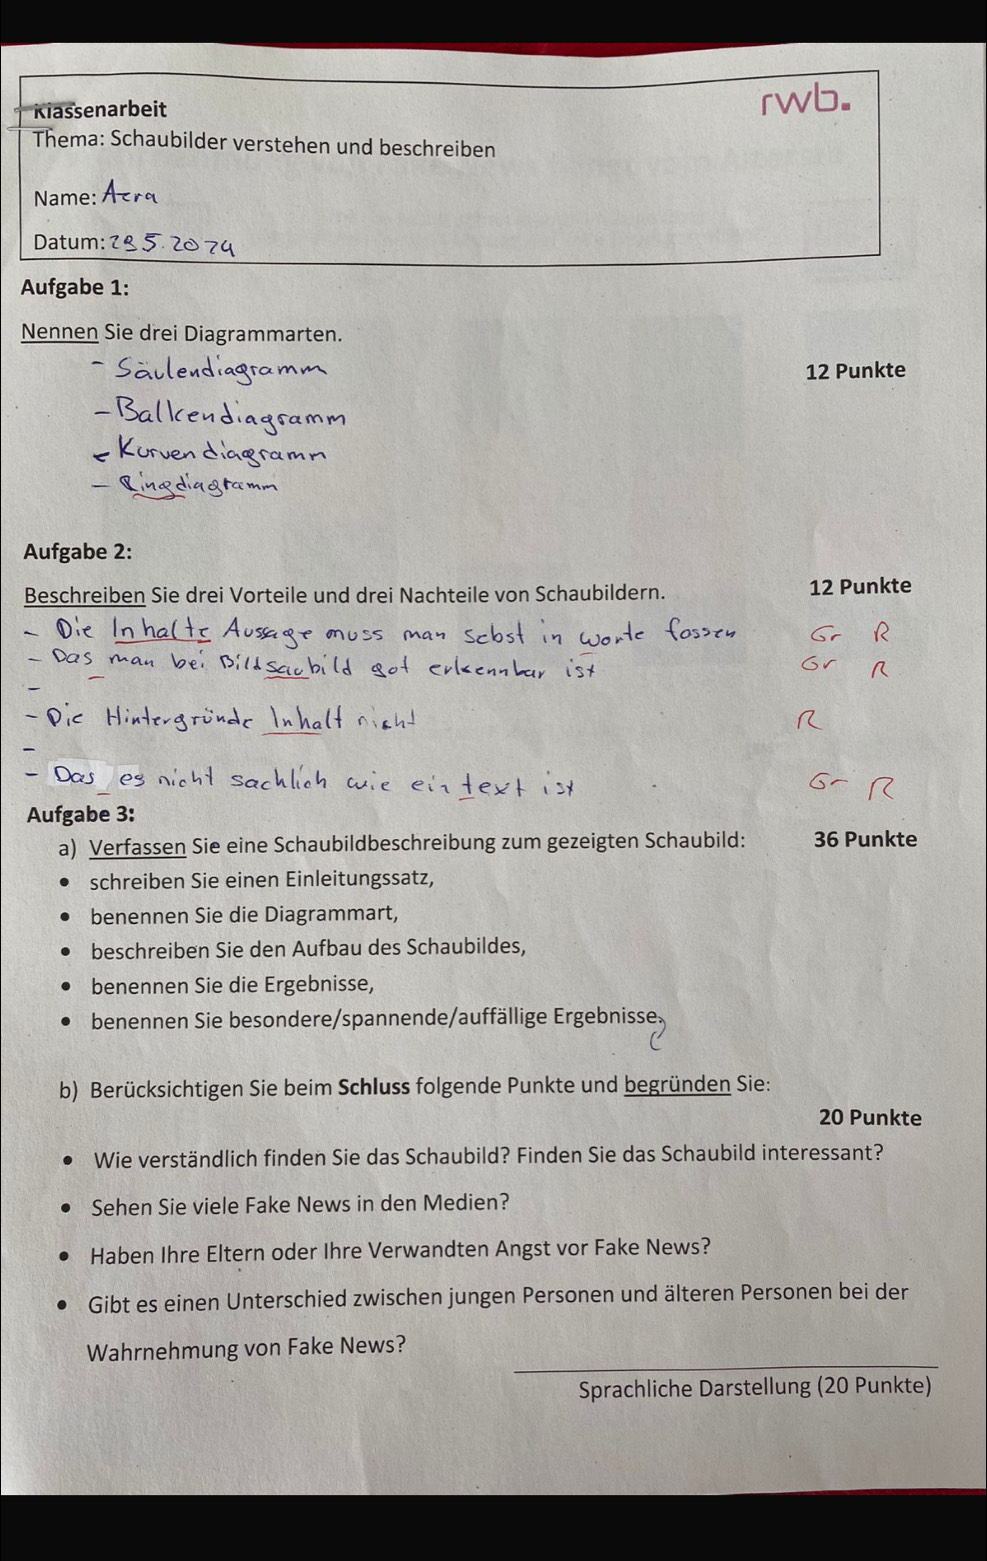 rwb.
Klassenarbeit
Thema: Schaubilder verstehen und beschreiben
Name: Azra
Datum: 29.5.2024
Aufgabe 1:
Nennen Sie drei Diagrammarten.
- Säulendiagramm
12 Punkte
- Balkendiagramm
- Kurvendiagramm
- Ringdiagramm
Aufgabe 2:
12 Punkte
Beschreiben Sie drei Vorteile und drei Nachteile von Schaubildern.
- Die Inhalte Aussage muss man sebst in worte fassen Gr R
- Das man bei Bildsaubild got erkennbar ist Gr R
-
- Die Hintergründe Inhalt nicht R
-
- Das es nicht sachlich wie ein text ist Gr R
Aufgabe 3:
a) Verfassen Sie eine Schaubildbeschreibung zum gezeigten Schaubild: 36 Punkte
• schreiben Sie einen Einleitungssatz,
• benennen Sie die Diagrammart,
• beschreiben Sie den Aufbau des Schaubildes,
• benennen Sie die Ergebnisse,
• benennen Sie besondere/spannende/auffällige Ergebnisse.
b) Berücksichtigen Sie beim Schluss folgende Punkte und begründen Sie:
20 Punkte
• Wie verständlich finden Sie das Schaubild? Finden Sie das Schaubild interessant?
• Sehen Sie viele Fake News in den Medien?
• Haben Ihre Eltern oder Ihre Verwandten Angst vor Fake News?
• Gibt es einen Unterschied zwischen jungen Personen und älteren Personen bei der
Wahrnehmung von Fake News?
Sprachliche Darstellung (20 Punkte)